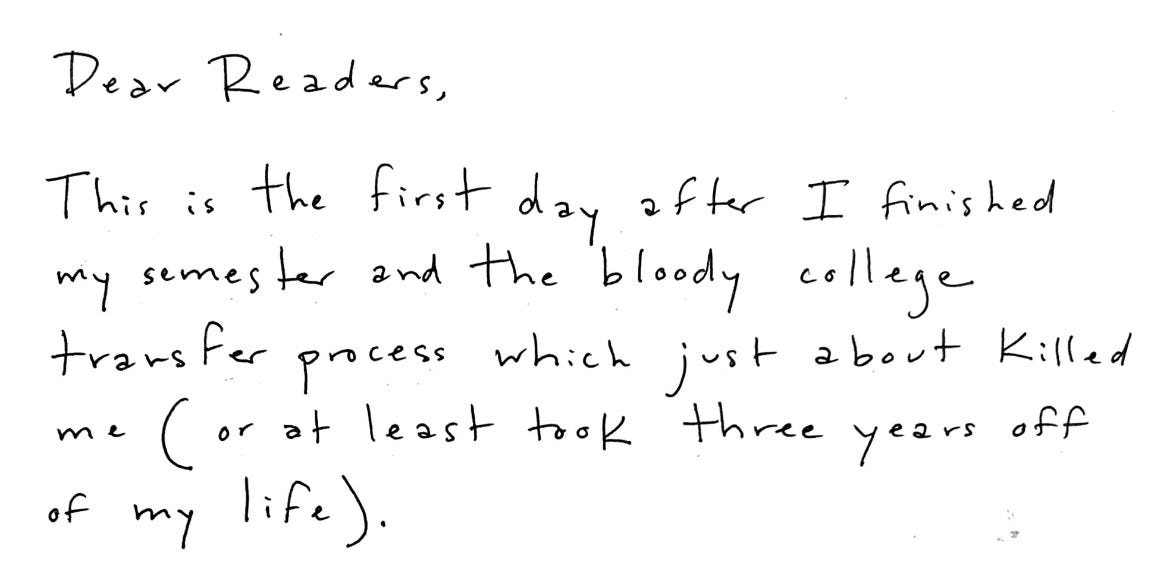 Dear Readers,
This is the first day after I finished
my semester and the bloody college
transfer process which just about killed
me (or at least took three years off
of my life).